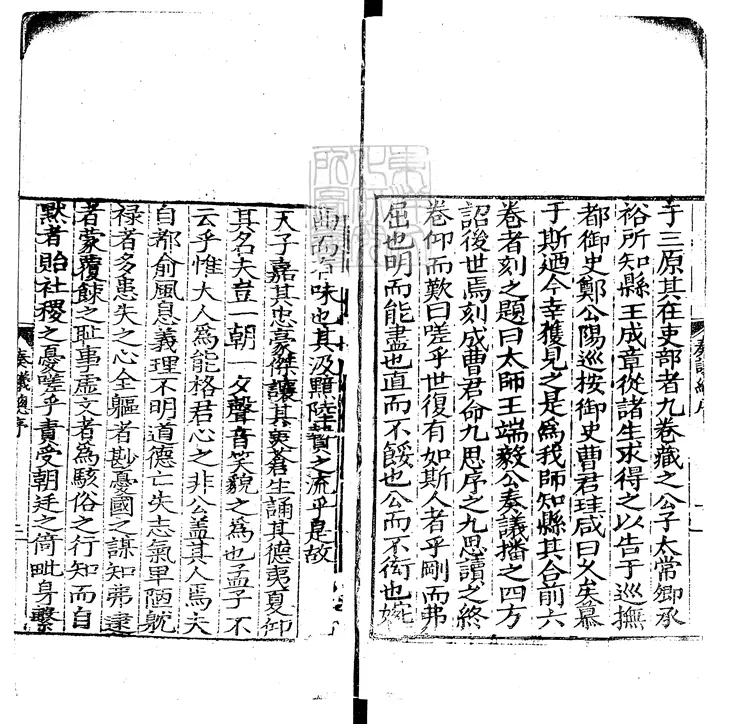 于三原其在吏部者九卷藏之公子太常卿承
裕所知縣王成章從諸生求得之以告于巡撫
都御史鄭公陽巡按御史曹君珪咸曰久矣慕
于斯迺今幸獲見之是爲我師知縣其合前六
卷者刻之題曰太師王端毅公奏議播之四方
詔後世焉刻成曹君命九思序之九思讀之終
卷仰而歎曰嗟乎世復有如斯人者乎剛而弗
屈也明而能盡也直而不餒也公而不衒也婉
曲而有味也其汲黯陸贄之流乎是故
天子嘉其忠豪傑讓其爽蒼生誦其德夷夏仰
其名夫豈一朝一夕聲音笑貌之爲也孟子不
云乎惟大人爲能格君心之非公盖其人焉夫
自都俞風息義理不明道德亡失志氣卑陋躭
禄者多患失之心全軀者尠憂國之謀知弗逮
者蒙覆餗之耻事虛文者為駭俗之行知而自
默者貽社稷之憂嗟乎責受朝廷之倚毗身繫
奏議總序
二